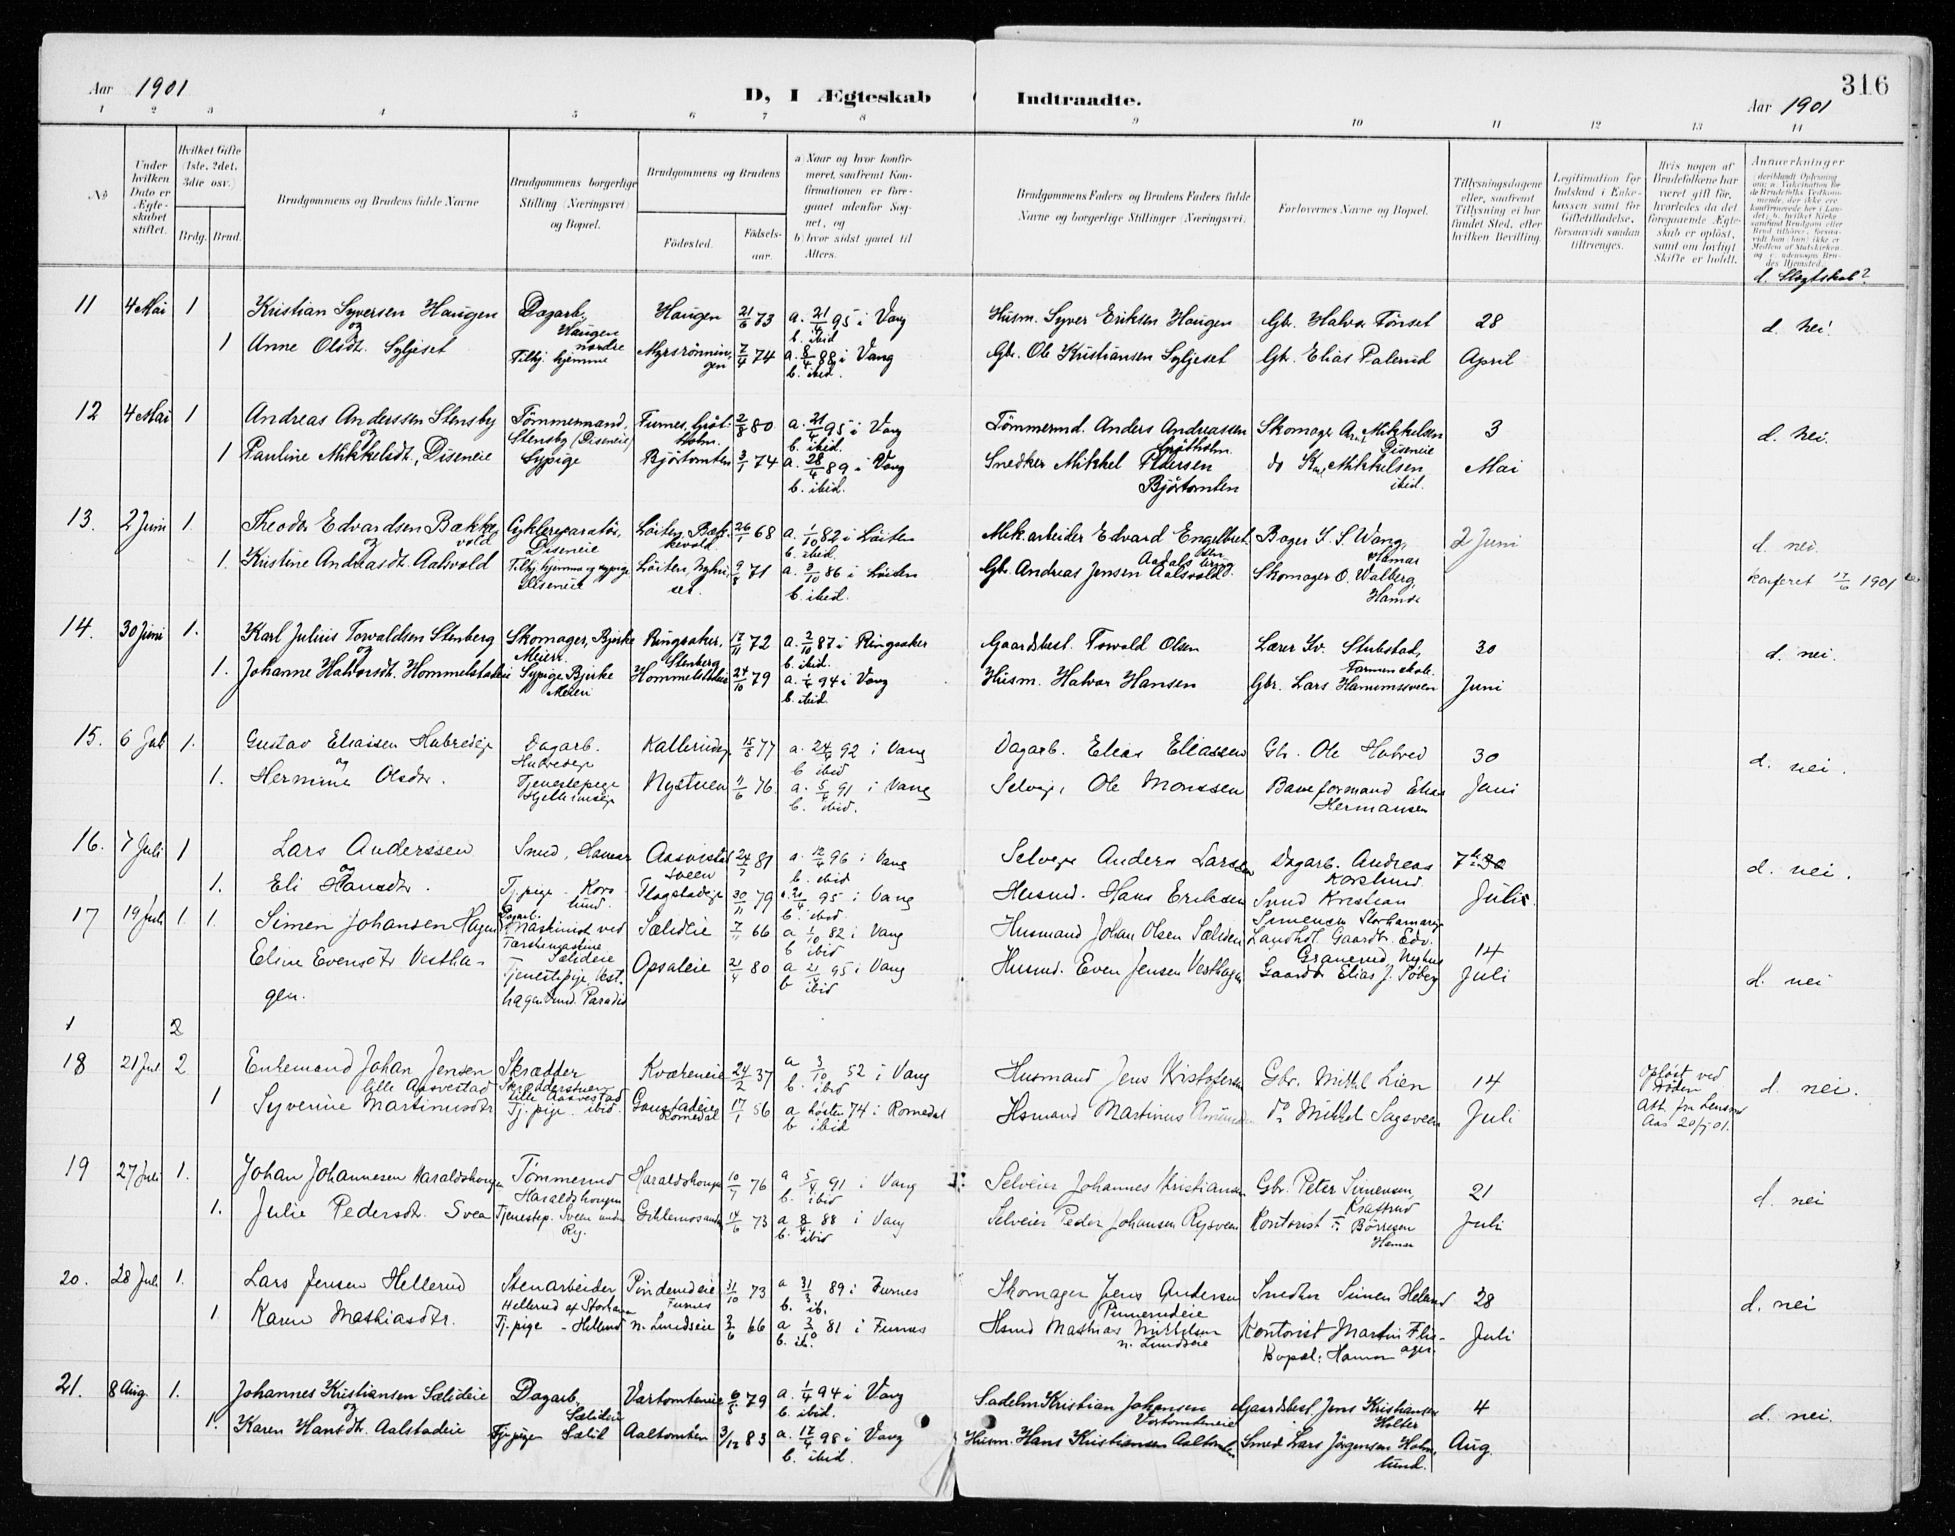 316
Aar 1901
D, I Ægteskab Indtraadte.
Aar 1901
1 2 3 4 5 6 7 8 9 10 11 12 13 14
No
Under hvilken Dato er Ægteskabet stiftet.
Hvilket Gifte (1ste, 2det, 3die osv.)
Brdg. Brud.
Brudgommens og Brudens fulde Navne
Brudgommens borgerlige Stilling (Næringsvei) og Bopæl.
Brudgommens og Brudens
Fødested. Fødselsaar.
a) Naar og hvor konfirmeret, saafremt Konfirmationen er foregaaet udenfor Sognet, og
b) hvor sidst gaaet til Alters.
Brudgommens Faders og Brudens Faders fulde Navne og borgerlige Stillinger (Næringsvei).
Forlovernes Navne og Bopæl.
Tillysningsdagene eller, saafremt Tillysning ei har fundet Sted, efter hvilken Bevilling.
Legitimation for Indskud i Enkekassen samt for Giftetilladelse, forsaavidt saadan tiltrænges.
Hvis nogen af Brudefolkene har været gift før, hvorledes da det foregaaende Ægteskab er opløst, samt om lovligt Skifte er holdt.
Anmærkninger
d. Slægtskab?
11 4 Mai 1 Kristian Syversen Haugen Dagarb. Haugen nordre Haugen 21/6 73 a. 21/4 95 i Vang b. ibid Husm. Syver Eriksen Haugen Gbr. Halvor Tønset 28 d. nei!
og
1 Anne Olsdt. Syljeset Tilhj. hjemme Myrsrønningen 7/4 74 a. 8/4 88 i Vang b. ibid. Gbr. Ole Kristiansen Syljeset Gbr. Elias Palerud April
12 4 Mai 1 Andreas Anderssen Stensby Tømmermand, Stensby (Diseneie) Furnes, Grøtholm. 2/8 80 a. 21/4 95 i Vang b. ibid. Tømmermd. Anders Andreassen Grøtholm. Skomager Ar. Mikkelsen Diseneie 3 d. nei.
og
1 Pauline Mikkelsdt. Diseneie Sypige Bjørtomten 3/1 74 a. 28/4 89 i Vang b. ibid. Snedker Mikkel Pedersen Bjørtomten do K. Mikkelsen ibid. Mai
13. 2 Juni 1. Theodor Edvardsen Bækkevold Cyklereparatør, Diseneie Løiten, Bækkevold. 26/1 68 a. 1/10 82 i Løiten b. ibid. Mek.arbeider Edvard Engelbret Bager S. S. Wang, Hamar 2 Juni d. nei.
og
1. Kristine Andreasdt. Aalsvold Tilhj. hjemme og sypige Diseneie Løiten, 9/8 71 a. 3/10 86 i Løiten b. ibid. Gbr. Andreas Jensen Aalsvold. Skomager O. Walberg, Hamar 17/6 1901
14. 30 Juni 1. Karl Julius Torvaldsen Stenberg Skomager, Bjerke Meieri Ringsaker, Stenberg 17/11 72 a. 2/10 87 i Ringsaker b. ibid. Gaardsbest. Torvald Olsen Lærer Iv. Stubstad, Farmen skole. 30 d. nei.
og
1. Johanne Halvorsdt. Hommelstadeie Sypige Bjerke Meieri Hommelstadeie 24/10 79 a. 1/4 94 i Vang b. ibid. Husm. Halvor Hansen Gbr. Lars Hamumssveen Juni
15. 6 Juli 1. Gustav Eliassen Hubredeje Dagarb. Hubredeje Kallerudeje 15/8 77 a. 24/4 92 i Vang b ibid Dagarb. Elias Eliassen Gb. Ole Hubred 30 d. nei.
og
1. Hermine Olsdtr. Tjenestepige Nystuen 9/6 76 a. 5/4 91 i Vang b. ibid. Selvejer Ole Monssen Baneformand Elias Hermansen Juni
16. 7 Juli 1 Lars Anderssen Smed, Hamar Aasvestad sveen 24/7 81 a. 12/4 96 i Vang b. ibid Selvejer Anders Larsen Dagarb. Andreas Korslund 7de d. nei.
og
1. Eli Hansdtr. Tj.pige Korslund. Flagstadeje 30/11 79 a. 21/4 95 i Vang b ibid Husmd. Hans Eriksen Smed Kristian Simensen Storhamareje Juli
17 19 Juli 1. 1. Simen Johansen Hagen Dagarb. Maskinist ved Tærskemaskine Sælideie Sælideie 7/1 66 a 1/10 82 i Vang b ibid Husmand Johan Olsen Sælideie Landhdl. Gaardbr. Edv. Granerud Nyhus 14
Eline Evensdtr Vesthagen. Tjenestepige, Vesthagen und. Paradis Opsaleie 21/4 80 a 21/4 95 i Vang b ibid Husmd. Even Jensen Vesthagen Gaardbr Elias J. Søberg Juli d. nei
1 2
18 21 Jul 2 Enkemand Johan Jensen lille Aasvestad Skrædder Skrædderstuen lille Aasvestad Kværneie 24/2 37 a 3/10 52 i Vang b. ibid Husmand Jens Kristofersen Gbr. Mikkel Lien 14 Opløst ved Døden Att. fra Lensmd Aas 20/7 01. d. nei.
1 Syverine Martinusdtr Tj.pige ibid. Gaustadeie Romedal 17/1 56 a høsten 74 i Romedal b ibid Hsmand Martinus do Mikkel Sagsveen Juli
19 27 Juli 1. Johan Johannesen Haraldshaugen Tømmermd Haraldshaugen Haraldshaugen 10/7 76 a 5/4 91 i Vang b. ibid Selveier Johannes Kristiansen Gbr. Peter Simensen, Kraftrud 21 d. nei
1. Julie Pedersdtr. Sveen Tjenestep. Sveen under Ry. 14/6 73 a 8/4 88 i Vang b. ibid Selveier Peder Johansen Rysveen Kontorist Børresen Hamar Juli
20. 28 Juli 1. Lars Jensen Hellerud Stenarbeider Hellerud af Storhamar Pinderudeie Furnes 31/10 73 a 31/3 89 i Furnes b. ib. Skomager Jens Andersen Pinnerudeie Snedker Simen Helerud 28 d. nei
1. Karen Mathiasdtr. Tj.pige - Hellerud n. Lundseie 3/6 66 a 3/4 81 i Furnes b. ib. Hsmd Mathias Mikkelsen n. Lundseie Kontorist Martin Fliager. Bopæl: Hamar Juli
21. 8 Aug. 1. Johannes Kristiansen Sælideie Dagarb. Sælideie Vartomteneie 6/5 79 a. 1/4 94 i Vang b. ibid. Sadelm Kristian Johansen Vartomteneie Gaardsbest. Jens Kristiansen Holter 4 d. nei.
og
1. Karen Hansdt. Aalstadeie Tj.pige Sælid Aaltomten 3/12 83 a. 17/4 98 i Vang b. ibid. Husm. Hans Kristiansen Aaltomten Smed Lars Jørgensen Holmlund. Aug.